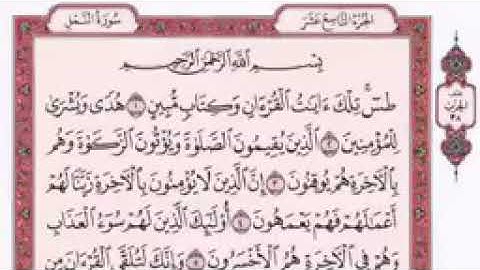 الجزء التاسع عشر
سورة النمل
بِسْمِ اللَّهِ الرَّحْمَٰنِ الرَّحِيمِ
طسٓ ۚ تِلْكَ ءَايَٰتُ الْقُرْءَانِ وَكِتَابٍ مُّبِينٍ ١ هُدًى وَبُشْرَىٰ
لِلْمُؤْمِنِينَ ٢ الَّذِينَ يُقِيمُونَ الصَّلَوٰةَ وَيُؤْتُونَ الزَّكَوٰةَ وَهُم
بِالْءَاخِرَةِ هُمْ يُوقِنُونَ ٣ إِنَّ الَّذِينَ لَا يُؤْمِنُونَ بِالْءَاخِرَةِ زَيَّنَّا لَهُمْ
أَعْمَٰلَهُمْ فَهُمْ يَعْمَهُونَ ٤ أُو۟لَٰٓئِكَ الَّذِينَ لَهُمْ سُوٓءُ الْعَذَابِ
وَهُمْ فِي الْءَاخِرَةِ هُمُ الْأَخْسَرُونَ ٥ وَإِنَّكَ لَتُلَقَّى الْقُرْءَانَ مِن
الحزب
٣٨